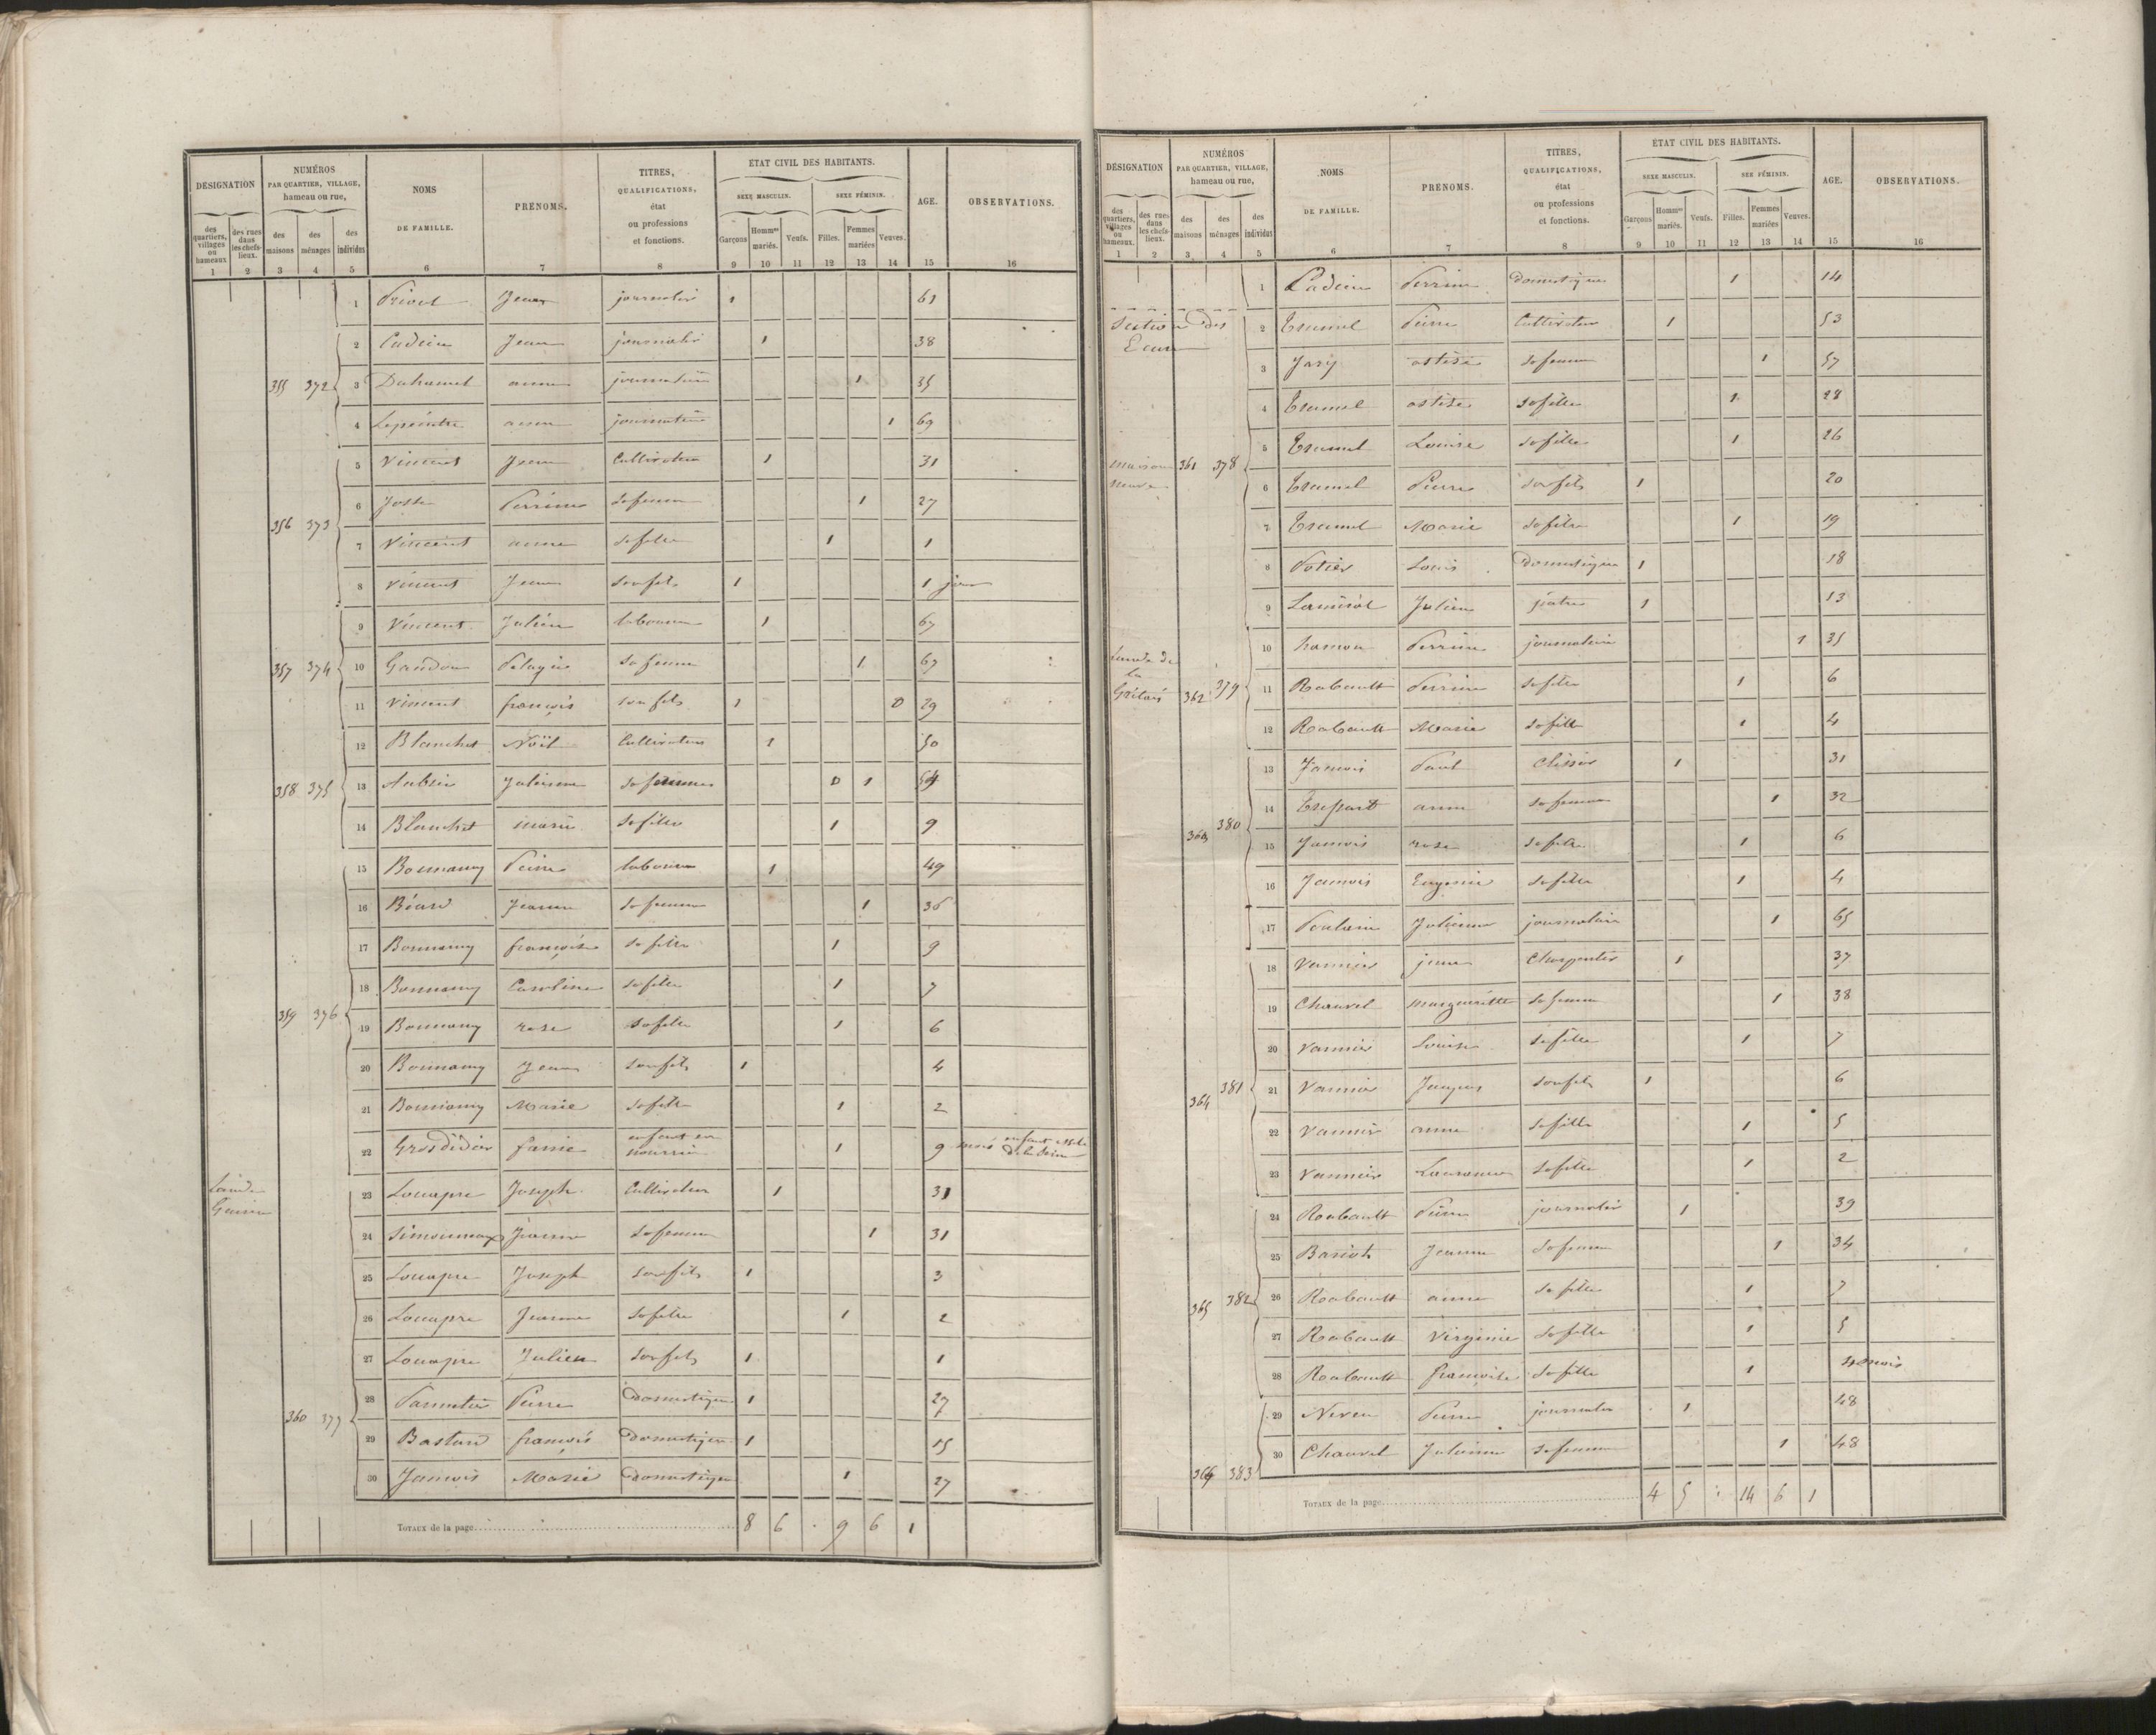 DÉSIGNATION NUMÉROS PAR QUARTIER, VILLAGE, hameau ou rue, NOMS DE FAMILLE. PRÉNOMS. TITRES, QUALIFICATIONS, état ou professions et fonctions. ÉTAT CIVIL DES HABITANTS. AGE. OBSERVATIONS.
SEXE MASCULIN. SEXE FÉMININ.
des quartiers, villages ou hameaux. des rues dans les chefs-lieux. des maisons des ménages des individus Garçons Hommes mariés. Veufs. Filles. Femmes mariées Veuves.
1 2 3 4 5 6 7 8 9 10 11 12 13 14 15 16
1 Jean journalier 1 61
2 Cadieu Jean journalier 1 38
355 372 3 Duhamel anne journalière 1 35
4 Lepeintre anne journalière 1 69
5 Vincent Jean Cultivateur 1 31
6 Josse Perrine sa femme 1 27
356 373
7 Vincent anne sa fille 1 1
8 Vincent Jean son fils 1 1 jour
9 Vincent Julien laboureur 1 67
357 374 10 Gaudon Pelagie sa femme 1 67
11 Vincent françois son fils 1 0 29
12 Blanchet Noël Cultivateur 1 50
358 375 13 Aubrée Julienne sa femme 0 1 54
14 Blanchet marie sa fille 1 9
15 Bonnamy Pierre laboureur 1 49
16 Béard Jeanne sa femme 1 36
17 Bonnamy françoise sa fille 1 9
18 Bonnamy Caroline sa fille 1 7
359 376 19 Bonnamy rose sa fille 1 6
20 Bonnamy Jean son fils 1 4
21 Bonnamy Marie sa fille 1 2
22 Grosdidier fanie enfant en nourrice 1 9 mois enfant de la Seine
Lande
23 Louapre Joseph Cultivateur 1 31
24 Simonneaux Jeanne sa femme 1 31
25 Louapre Joseph son fils 1 3
26 Louapre Jeanne sa fille 1 2
27 Louapre Julien son fils 1 1
28 Parmentier Pierre Domestique 1 27
360 377
29 Bastard françois Domestique 1 15
30 Jamois Marie Domestique 1 27
TOTAUX de la page 8 6 . 9 6 1
DÉSIGNATION NUMÉROS PAR QUARTIER, VILLAGE, hameau ou rue, NOMS DE FAMILLE. PRÉNOMS. TITRES, QUALIFICATIONS, état ou professions et fonctions. ÉTAT CIVIL DES HABITANTS. AGE. OBSERVATIONS.
SEXE MASCULIN. SEE FÉMININ.
des quartiers, villages ou hameaux. des rues dans les chefs-lieux. des maisons des ménages des individus Garçons Hommes mariés. Veufs. Filles. Femmes mariées Veuves.
1 2 3 4 5 6 7 8 9 10 11 12 13 14 15 16
1 Cadieu Perrine Domestique 1 14
Section des
2 Eramel Pierre Cultivateur 1 53
3 Jary astérie sa femme 1 57
4 Eramel astérie sa fille 1 28
5 Eramel Louise sa fille 1 26
maison neuve 361 378
6 Eramel Pierre son fils 1 20
7 Eramel Marie sa fille 1 19
8 Potier Louis Domestique 1 18
9 Julien pâtre 1 13
Lande de la
10 hamon Perrine journalière 1 35
362 379 11 Rabault Perrine sa fille 1 6
12 Rabault Marie sa fille 1 4
13 Jamois Paul 1 31
14 anne sa femme 1 32
363 380
15 Jamois rose sa fille 1 6
16 Jamois Eugenie sa fille 1 4
17 Poulain Julienne journalière 1 65
18 Vannier jean Charpentier 1 37
19 Chauvel margueritte sa femme 1 38
20 Vannier Louise sa fille 1 7
364 381 21 Vannier Jacques son fils 1 6
22 Vannier anne sa fille 1 5
23 Vannier Laurence sa fille 1 2
24 Rabault Pierre journalier 1 39
25 Bariot Jeanne sa femme 1 34
365 382 26 Rabault anne sa fille 1 7
27 Rabault Virginie sa fille 1 5
28 Rabault françoise sa fille 1 4 mois
29 Neveu Pierre journalier 1 48
30 Chauvel Julienne sa femme 1 48
366 383
TOTAUX de la page 4 5 : 14 6 1